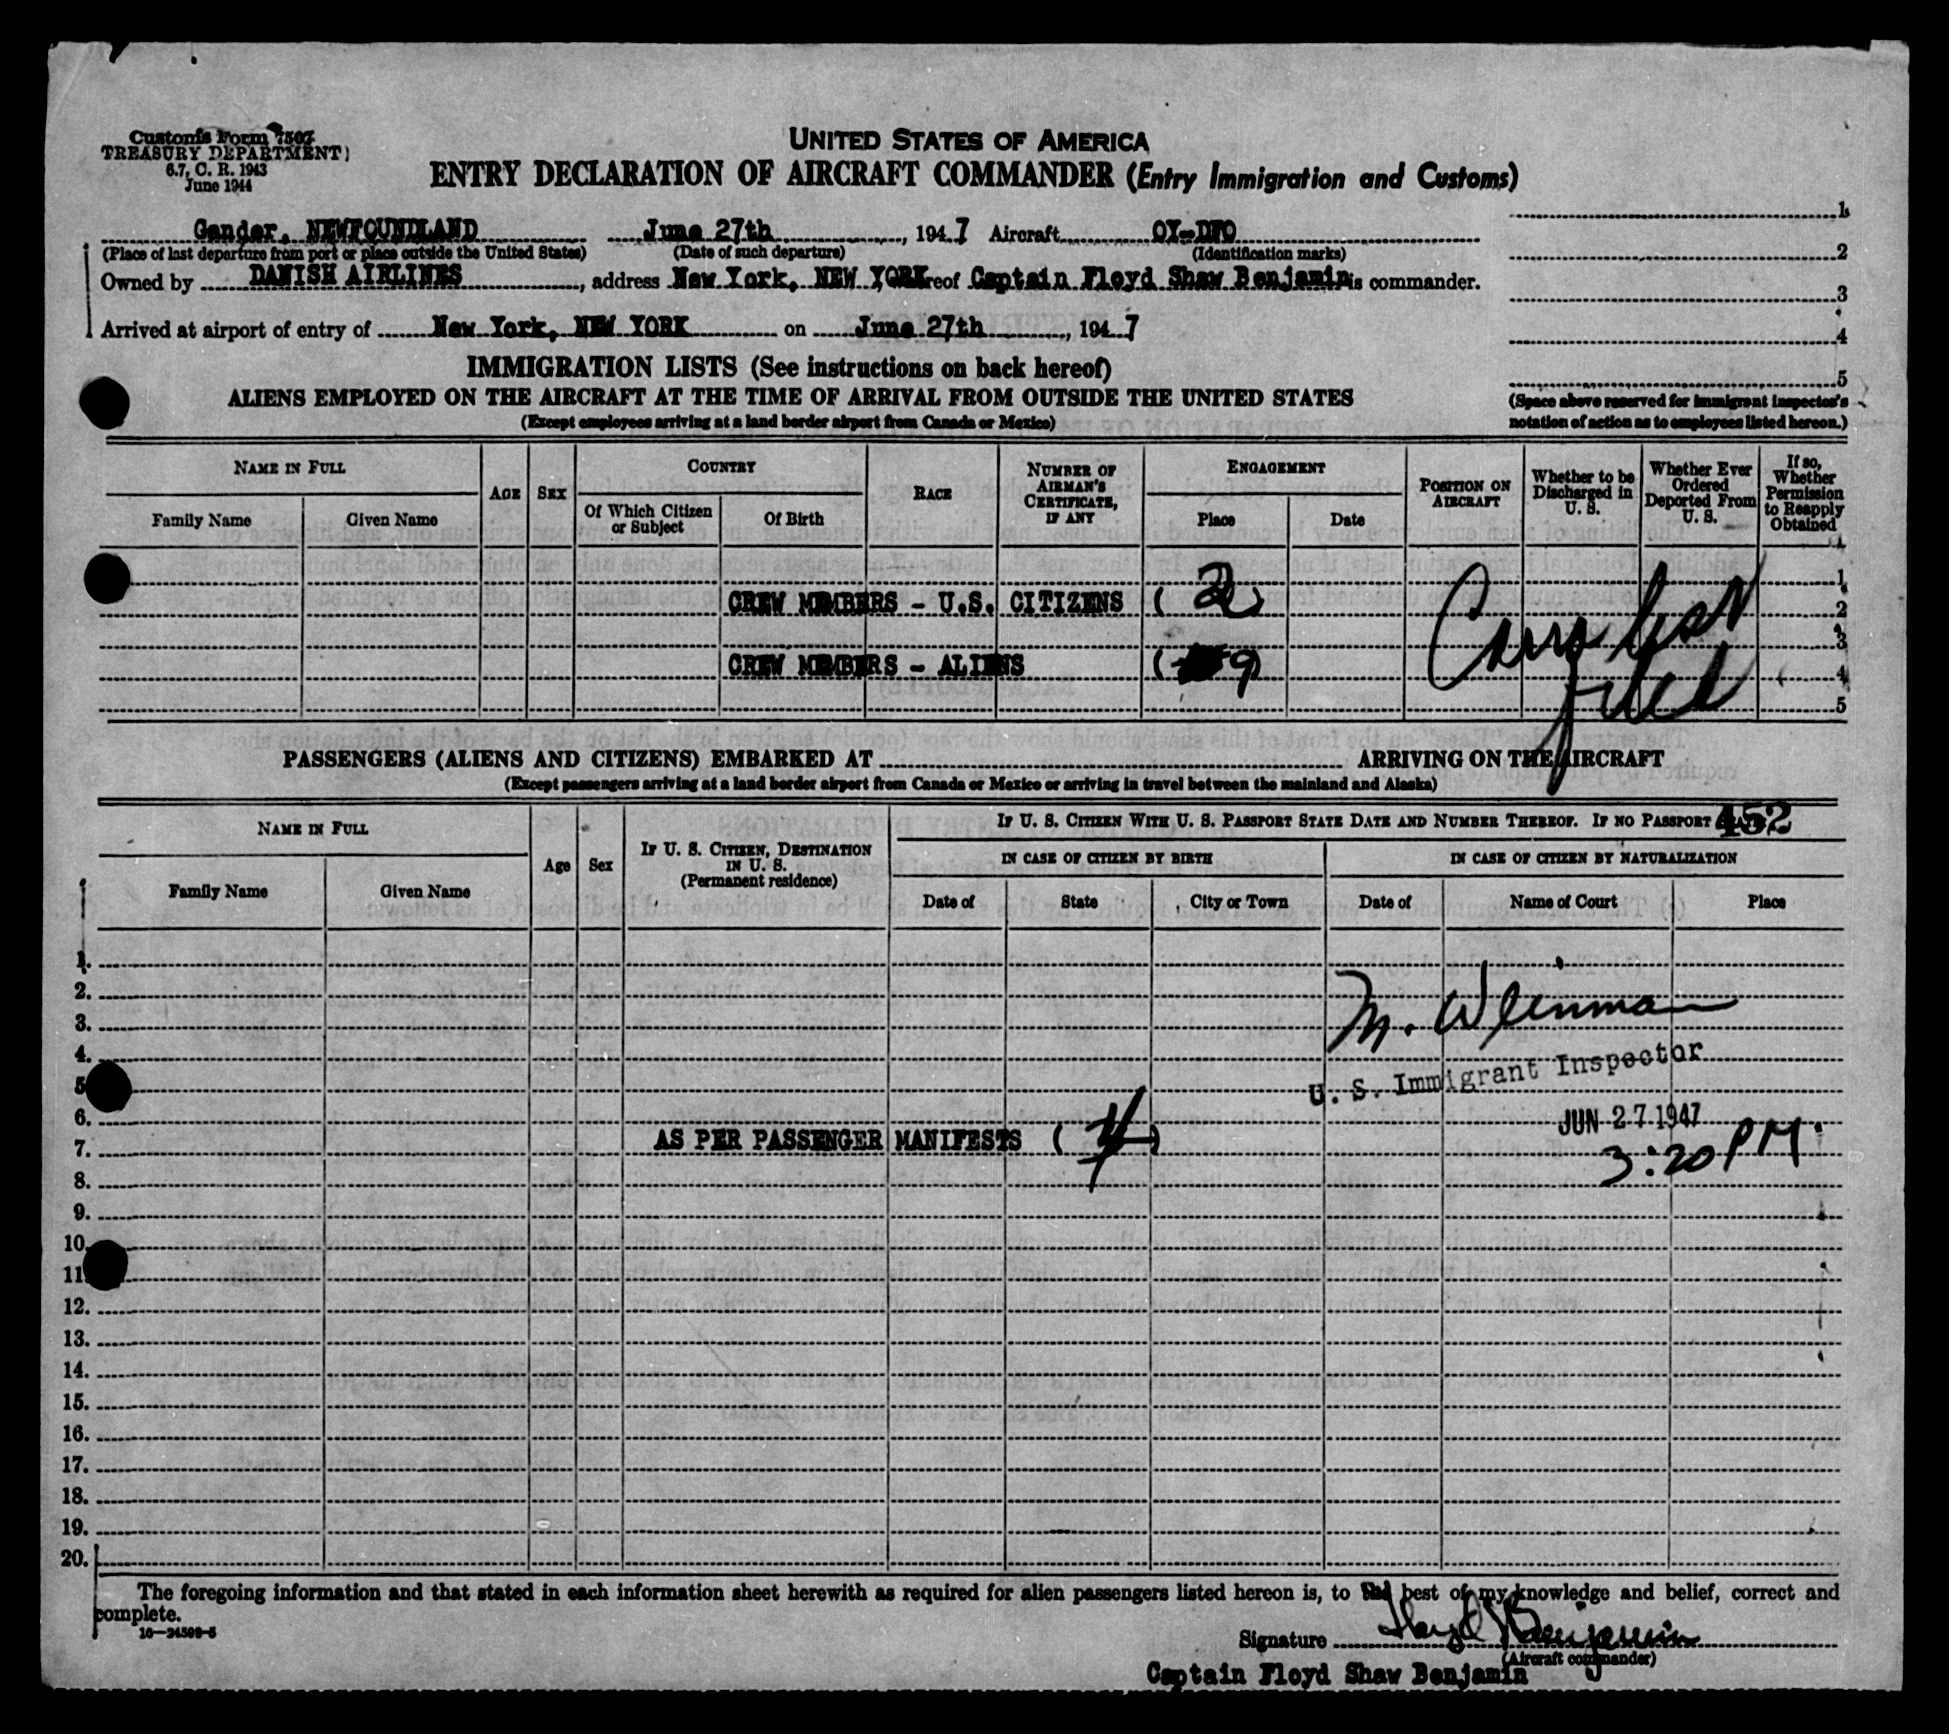 Customs Form 7507
TREASURY DEPARTMENT
6.7, C. R. 1943
June 1944
UNITED STATES OF AMERICA
ENTRY DECLARATION OF AIRCRAFT COMMANDER (Entry Immigration and Customs)
Gander, NEWFOUNDLAND June 27th, 1947 Aircraft OY-DFO
(Place of last departure from port or place outside the United States) (Date of such departure) (Identification marks)
Owned by DANISH AIRLINES, address New York, NEW YORK, whereof Captain Floyd Shaw Benjamin is commander.
Arrived at airport of entry of New York, NEW YORK on June 27th, 1947
1
2
3
4
5
(Space above reserved for immigrant inspector's
notation of action as to employees listed hereon.)
IMMIGRATION LISTS (See instructions on back hereof)
ALIENS EMPLOYED ON THE AIRCRAFT AT THE TIME OF ARRIVAL FROM OUTSIDE THE UNITED STATES
(Except employees arriving at a land border airport from Canada or Mexico)
NAME IN FULL
Family Name
Given Name
AGE
SEX
COUNTRY
Of Which Citizen or Subject
Of Birth
RACE
NUMBER OF AIRMAN'S CERTIFICATE, IF ANY
ENGAGEMENT
Place
Date
POSITION ON AIRCRAFT
Whether to be Discharged in U. S.
Whether Ever Ordered Deported From U. S.
If so, Whether Permission to Reapply Obtained
1
CREW MEMBERS - U.S. CITIZENS (2) 2
3
CREW MEMBERS - ALIENS (9) 4
5
filed
PASSENGERS (ALIENS AND CITIZENS) EMBARKED AT ARRIVING ON THE AIRCRAFT
(Except passengers arriving at a land border airport from Canada or Mexico or arriving in travel between the mainland and Alaska)
NAME IN FULL
Family Name
Given Name
Age
Sex
IF U. S. CITIZEN, DESTINATION IN U. S.
(Permanent residence)
IF U. S. CITIZEN WITH U. S. PASSPORT STATE DATE AND NUMBER THEREOF. IF NO PASSPORT STATE
452
IN CASE OF CITIZEN BY BIRTH
Date of
State
City or Town
IN CASE OF CITIZEN BY NATURALIZATION
Date of
Name of Court
Place
1.
2.
M. Weinman
3.
4.
U. S. Immigrant Inspector
5.
6.
JUN 27 1947
7. AS PER PASSENGER MANIFESTS
3:20 PM
8.
9.
10.
11.
12.
13.
14.
15.
16.
17.
18.
19.
20.
The foregoing information and that stated in each information sheet herewith as required for alien passengers listed hereon is, to the best of my knowledge and belief, correct and
complete.
16-24599-5
Signature Floyd S Benjamin
(Aircraft commander)
Captain Floyd Shaw Benjamin